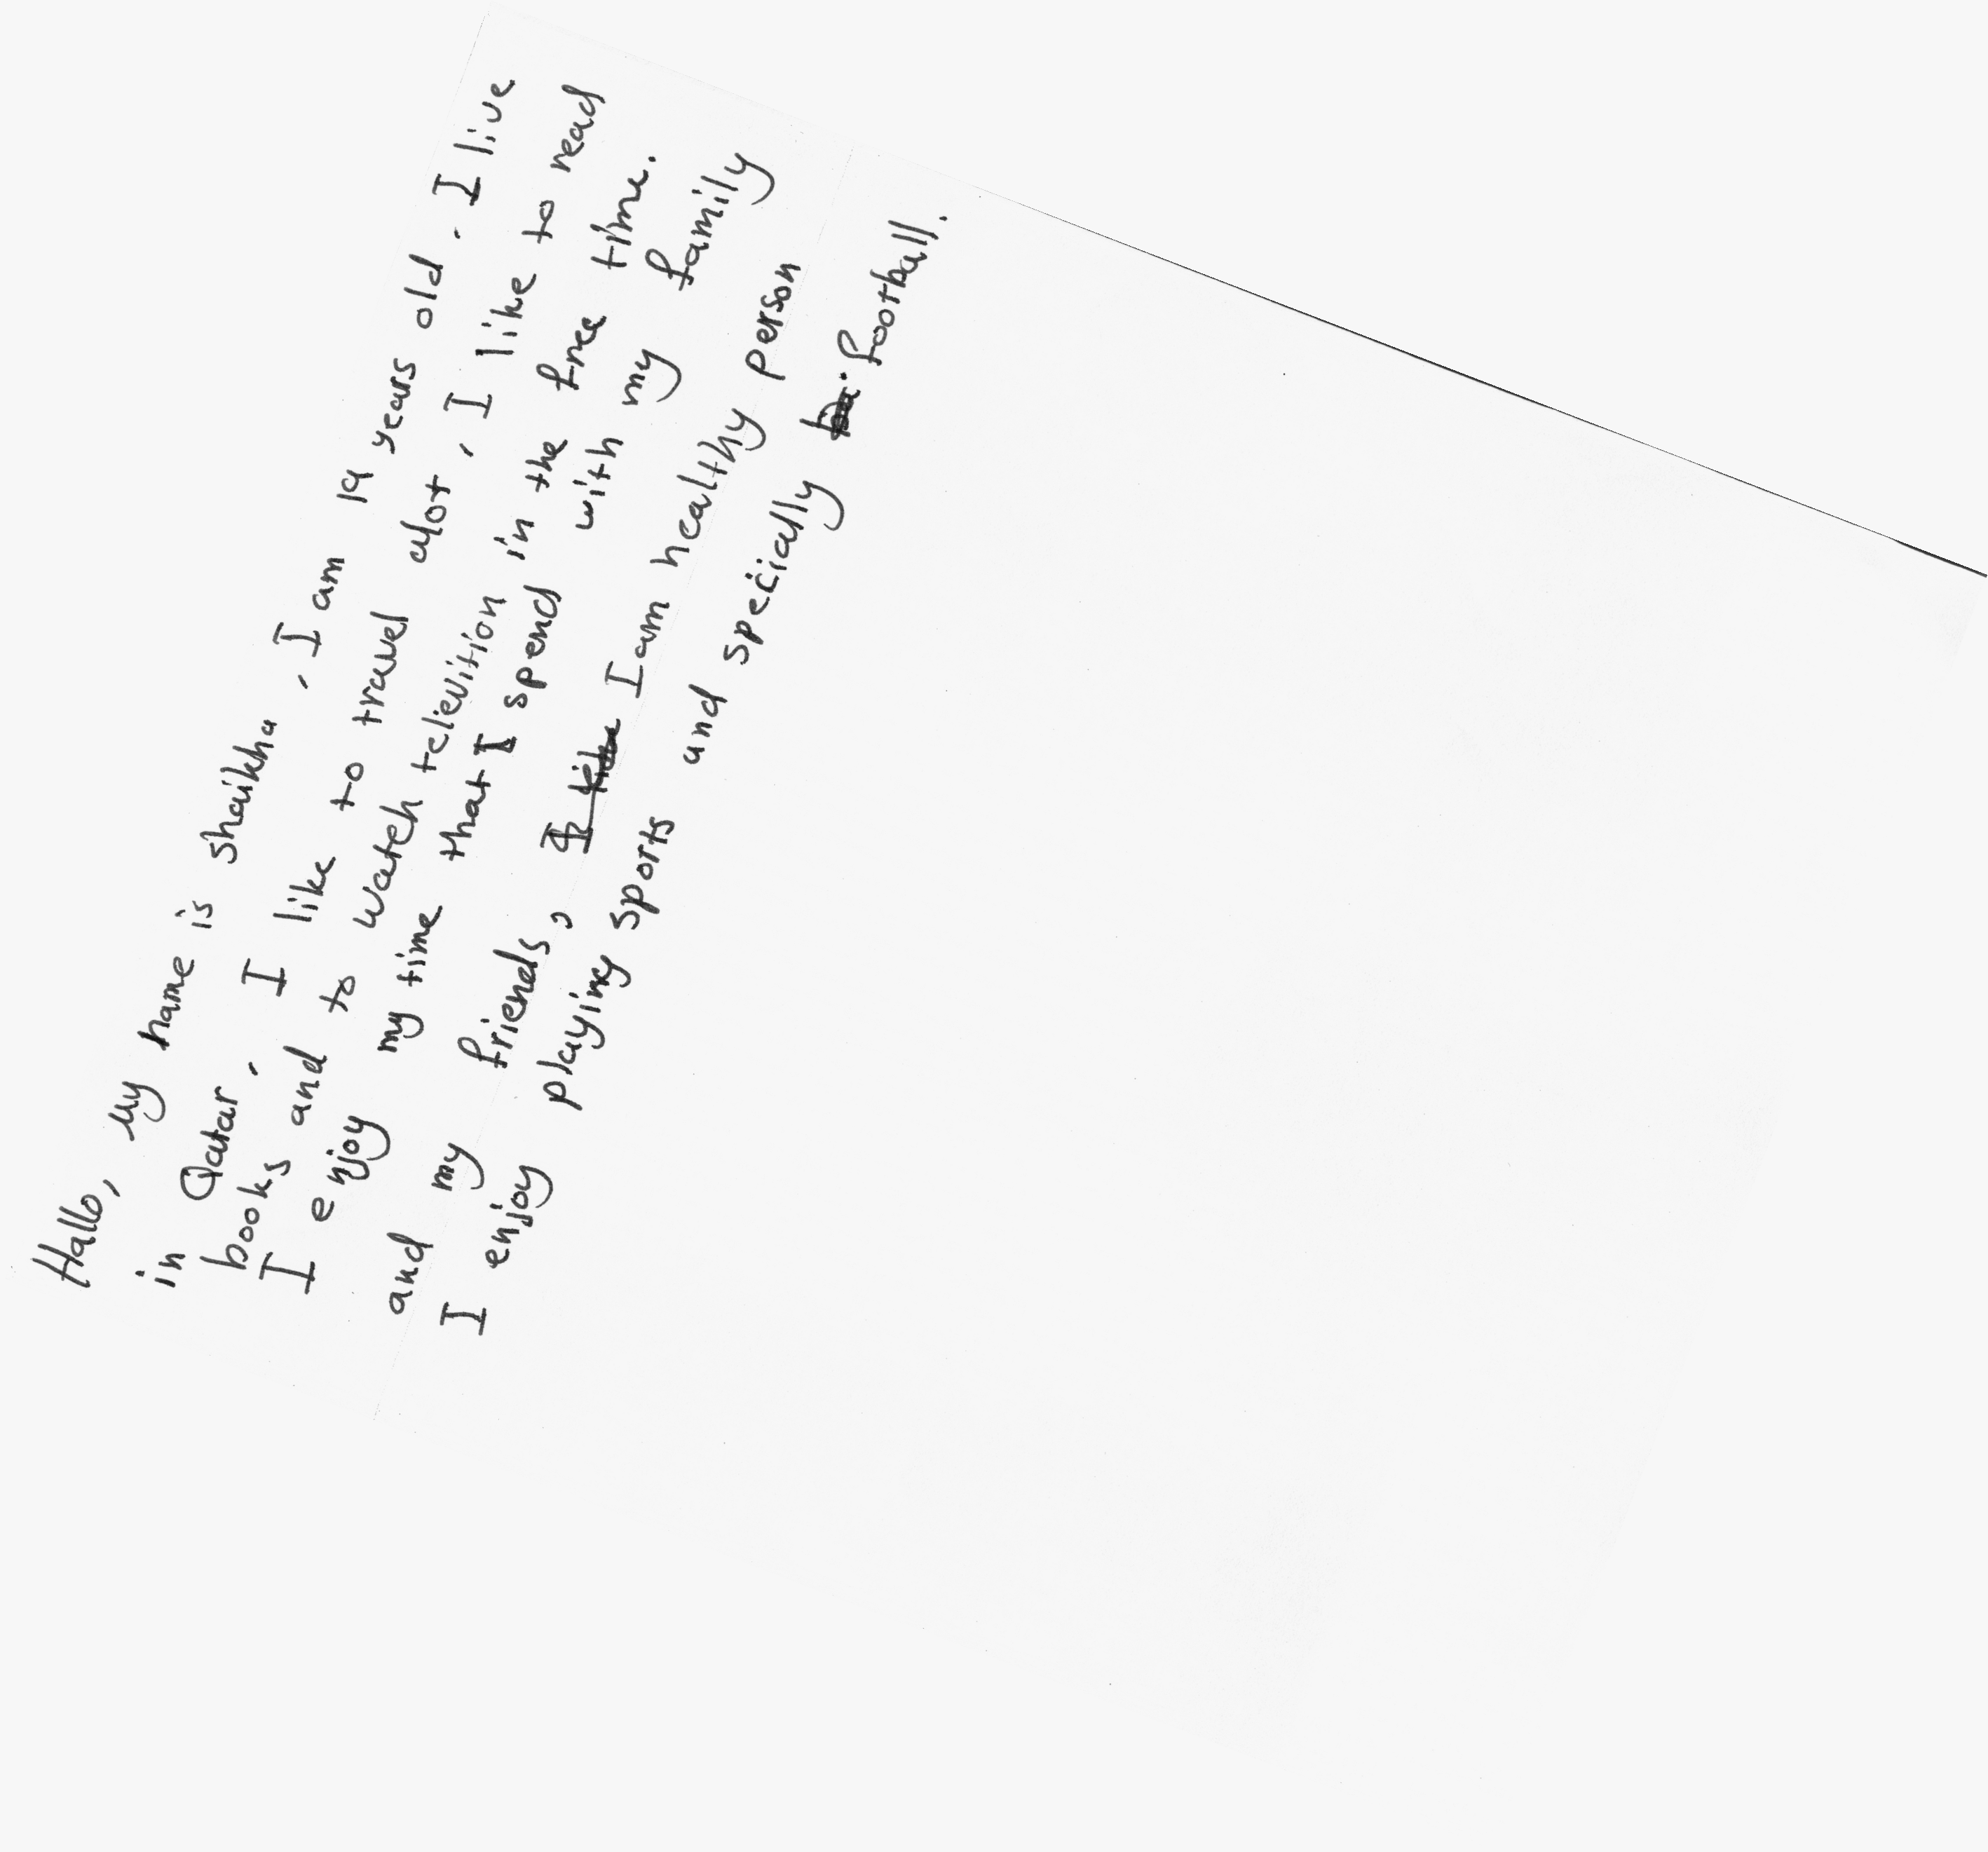 Hallo, my name is shaikha, I am 19 years old, I live
in Qatar, I like to travel alot, I like to read
books and to watch telievition in the free time.
I enjoy my time that I spend with my family
and my friends, I am healthy person
I enjoy playing sports and specially football.